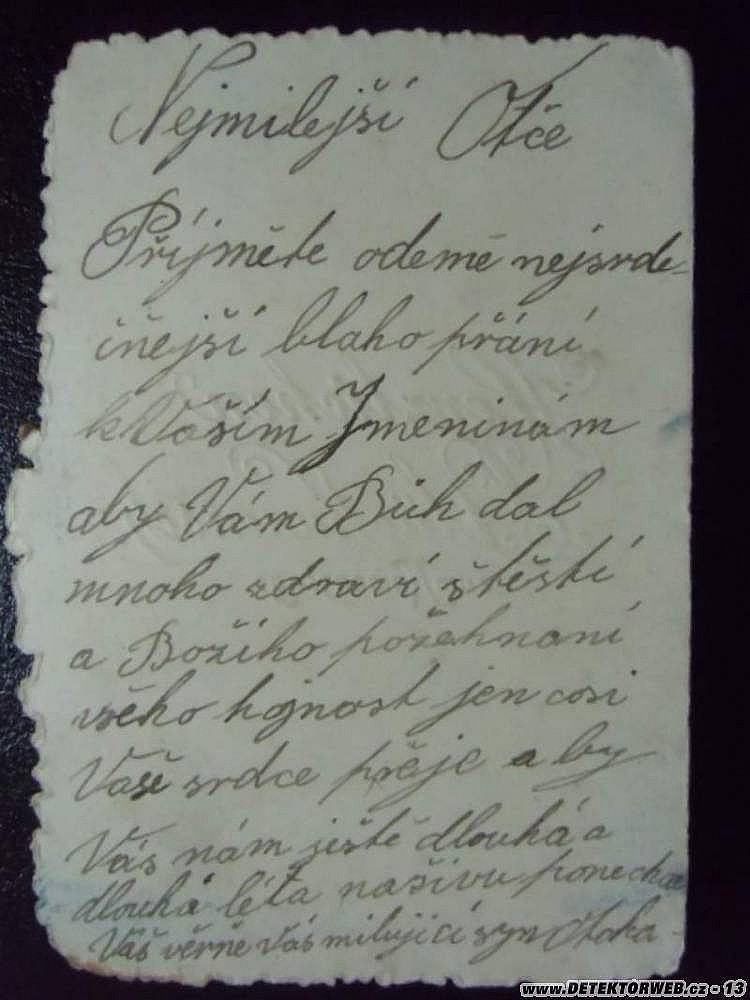 Nejmilejší Otče
Přijměte odemě nejsrde-
čňejší blaho přání
k Vaším Jmeninám
aby Vám Bůh dal
mnoho zdraví štěstí
a Božího požehnaní
všeho hojnost jen cosi
Vaše srdce přeje a by
Vás nám ještě dlouhá a
dlouhá léta naživu ponechal
Váš věrně Vás milující syn Otoka-
www.DETEKTORWEB.cz - 13